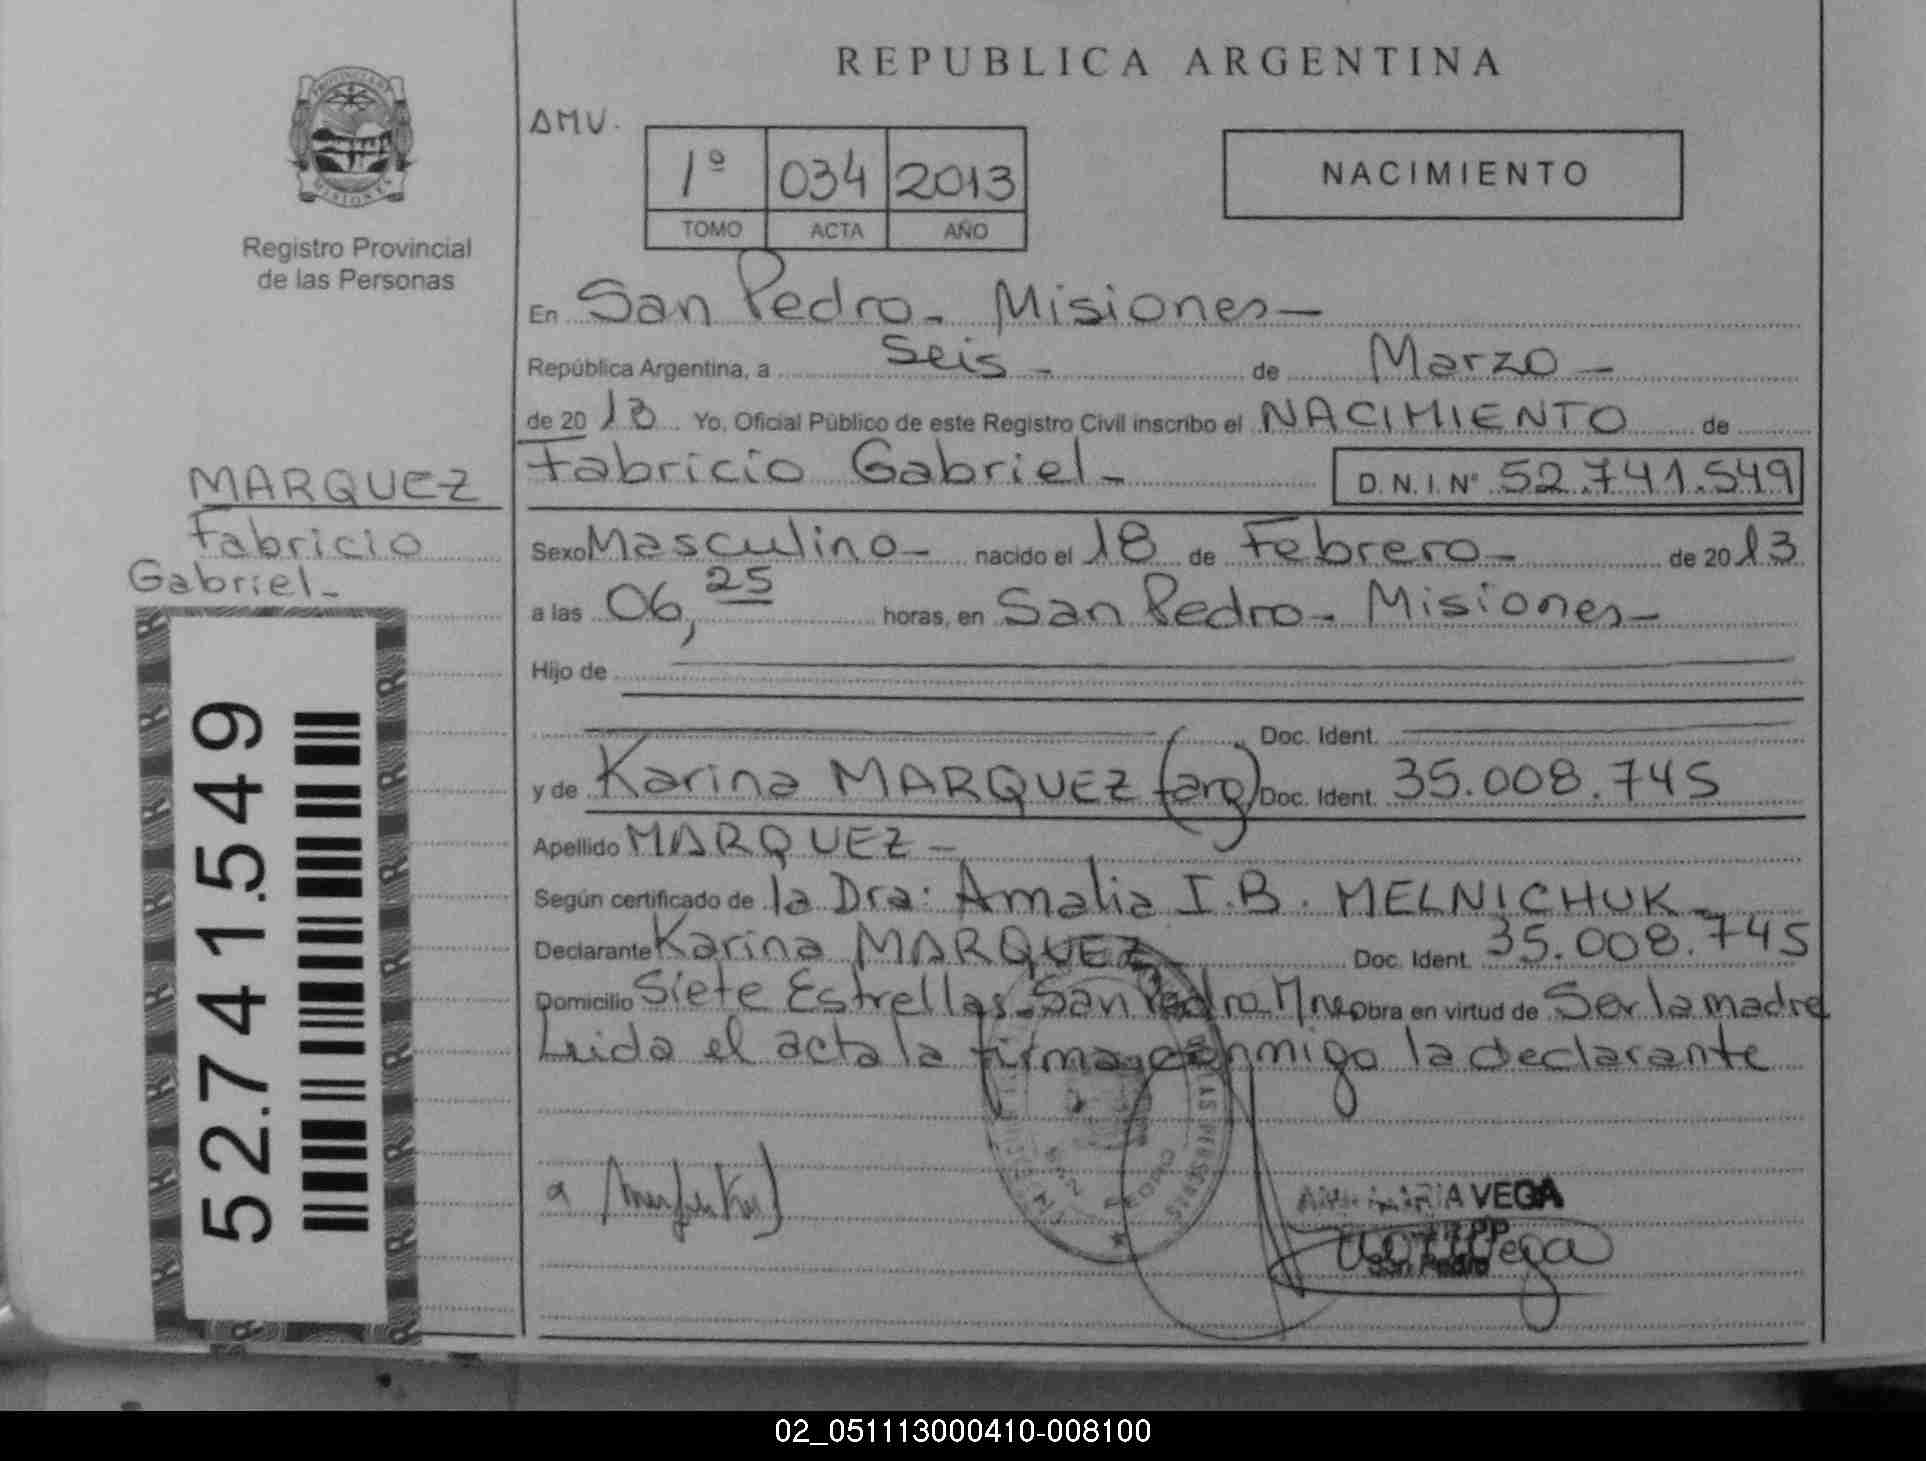 REPUBLICA ARGENTINA
PROVINCIA DE
MISIONES
Registro Provincial
de las Personas
AMV.
1º 034 2013
TOMO ACTA AÑO
NACIMIENTO
En San Pedro - Misiones -
República Argentina, a Seis - de Marzo -
de 2013 Yo, Oficial Público de este Registro Civil inscribo el NACIMIENTO de
Fabricio Gabriel - D.N.I. Nº 52.741.549
MARQUEZ
Fabricio
Gabriel -
52.741.549
Sexo Masculino - nacido el 18 de Febrero - de 2013
a las 06,25 horas, en San Pedro - Misiones -
Hijo de
Doc. Ident.
y de Karina MARQUEZ (arg) Doc. Ident. 35.008.745
Apellido MARQUEZ -
Según certificado de la Dra: Amalia I.B. MELNICHUK -
Declarante Karina MARQUEZ - Doc. Ident. 35.008.745
Domicilio Siete Estrellas - San Pedro. Mnes Obra en virtud de Ser la madre
Leida el acta la firma conmigo la declarante
SAN PEDRO
VEGA
San Pedro
02_051113000410-008100